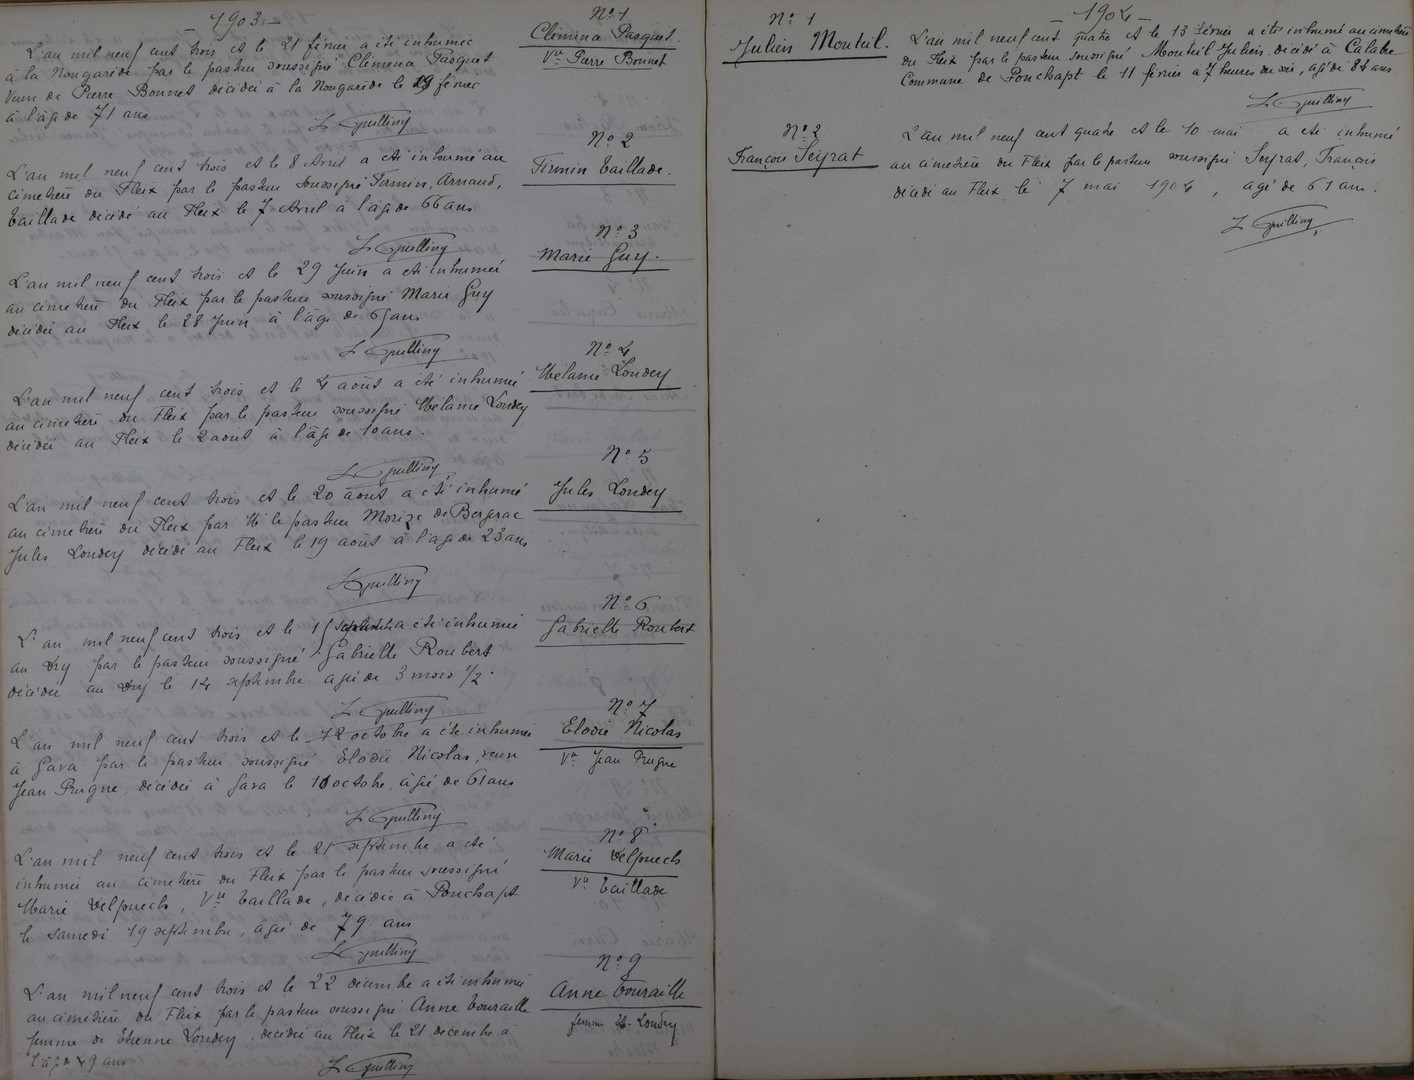 - 1903 -
L'an mil neuf cent trois et le 21 février a été inhumée
à la Nougarède par le pasteur soussigné Clémena Pasquet
Veuve de Pierre Bonnet décédée à la Nougarède le 19 février
à l'âge de 71 ans
L Guilling
N° 1
Clémena Pasquet.
Vve Pierre Bonnet
L'an mil neuf cent trois et le 8 Avril a été inhumé au
cimetière du Fleix par le pasteur soussigné Firmin, Arnaud,
Taillade décédé au Fleix le 7 Avril à l'âge de 66 ans
L Guilling
N° 2
Firmin Taillade.
L'an mil neuf cent trois et le 29 Juin a été inhumée
au cimetière du Fleix par le pasteur soussigné Marie Guy
décédée au Fleix le 28 Juin à l'âge de 65 ans
L Guilling
N° 3
Marie Guy.
L'an mil neuf cent trois et le 4 août a été inhumée
au cimetière du Fleix par le pasteur soussigné Mélanie Loudey
décédée au Fleix le 2 août à l'âge de 10 ans.
L Guilling
N° 4
Mélanie Loudey
L'an mil neuf cent trois et le 20 août a été inhumé
au cimetière du Fleix par M le pasteur Morize de Bergerac
Jules Loudey décédé au Fleix le 19 août à l'âge de 23 ans
L Guilling
N° 5
Jules Loudey
L'an mil neuf cent trois et le 15 septembre a été inhumée
au Dry par le pasteur soussigné Gabrielle Roubert
décédée au Dry le 14 septembre agée de 3 mois 1/2.
L Guilling
N° 6
Gabrielle Roubert
L'an mil neuf cent trois et le 12 octobre a été inhumée
à Gava par le pasteur soussigné Elodie Nicolas, veuve
Jean Prugne, décédée à Gava le 10 octobre, âgée de 61 ans
L Guilling
N° 7
Elodie Nicolas
Vve Jean Prugne
L'an mil neuf cent trois et le 21 septembre a été
inhumée au cimetière du Fleix par le pasteur soussigné
Marie Delpuech, Vve Taillade, décédée à Ponchapt
le samedi 19 septembre, agée de 79 ans
L Guilling
N° 8
Marie Delpuech
Vve Taillade
L'an mil neuf cent trois et le 22 décembre a été inhumée
au cimetière du Fleix par le pasteur soussigné Anne Touraille
femme de Etienne Loudey, décédée au Fleix le 21 décembre à
l'âge 49 ans
L Guilling
N° 9
Anne Touraille
femme Et. Loudey
- 1904 -
N° 1
Julien Monteil.
L'an mil neuf cent quatre et le 13 février a été inhumé au cimetière
du Fleix par le pasteur soussigné Monteil Julien décédé à Calabre
Commune de Ponchapt le 11 février à 7 heures du soir, agé de 84 ans
L Guilling
N° 2
François Seyrat
L'an mil neuf cent quatre et le 10 mai a été inhumé
au cimetière du Fleix par le pasteur soussigné Seyrat, François
décédé au Fleix le 7 mai 1904, agé de 61 ans.
L Guilling